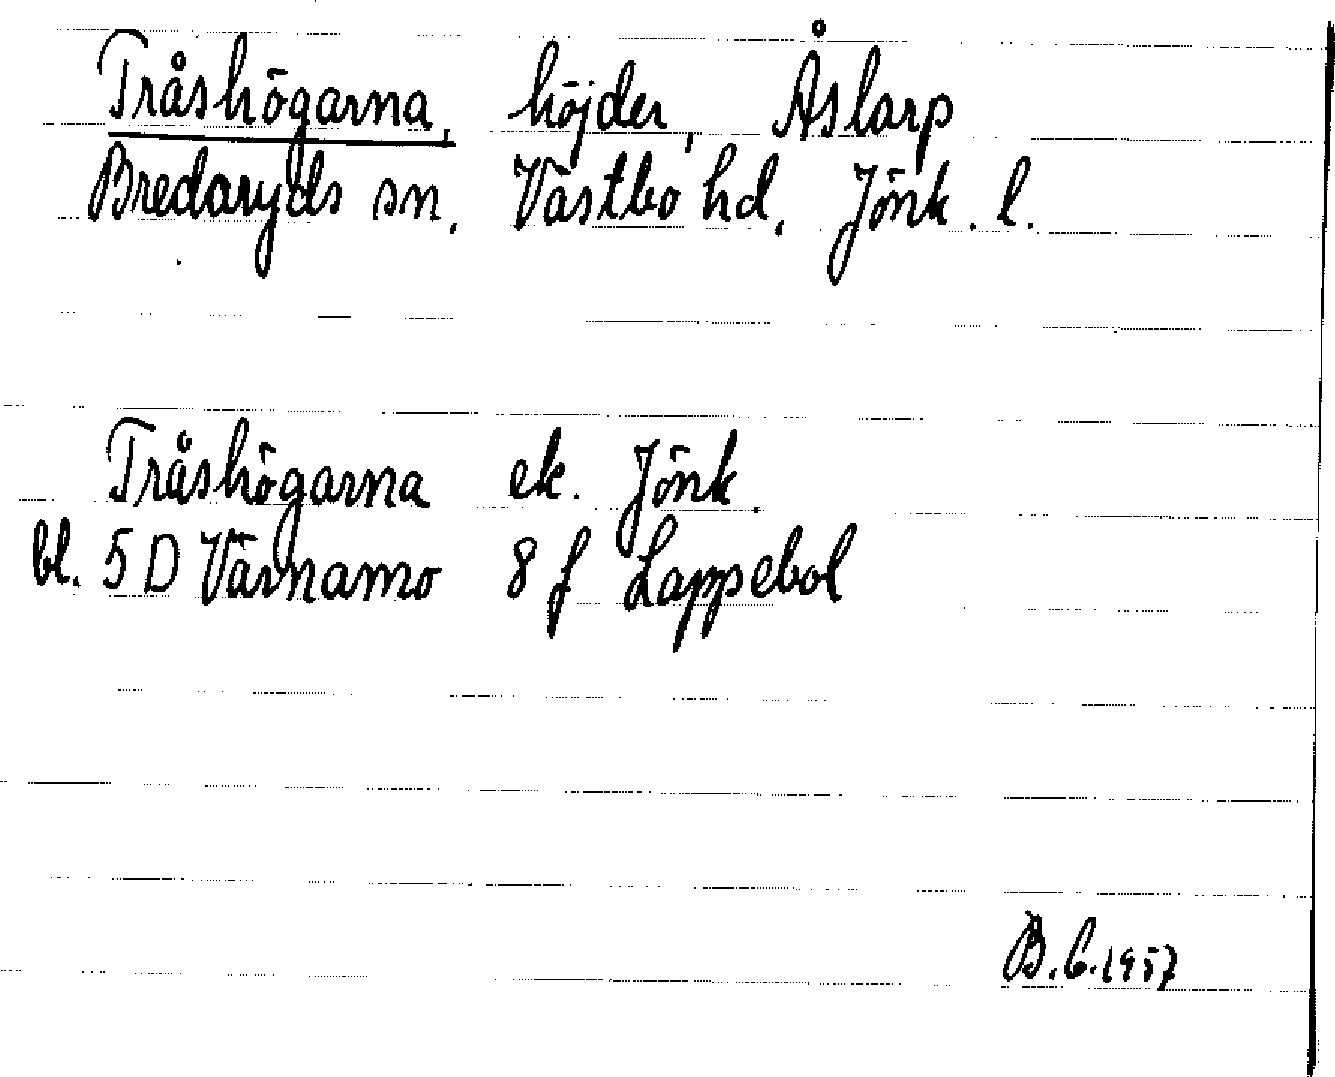 Tråshögarna, höjder, Åslarp
Bredaryds sn, Västbo hd, Jönk. l.
Tråshögarna ek. Jönk.
bl. 5 D Värnamo 8 f Lappebol
B.C. 1957